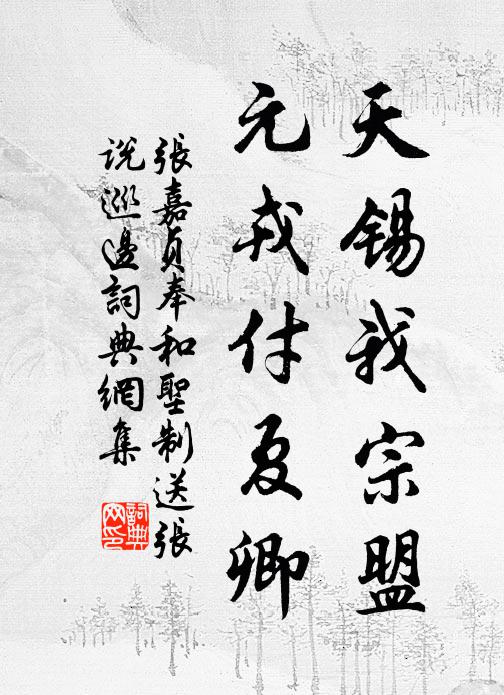 天錫我宗盟
元戎付夏卿
張嘉貞奉和聖制送張
說巡邊詞典網集
詞典
网印